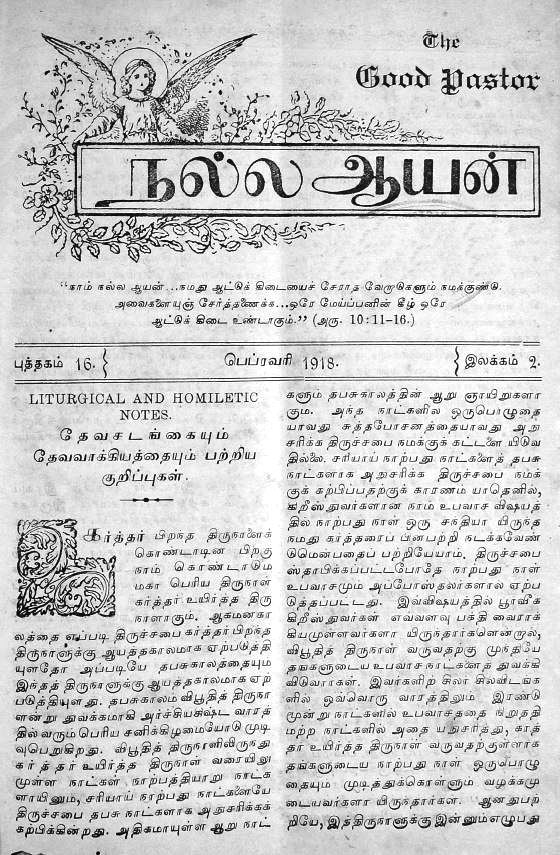 The
Good Pastor
நல்ல ஆயன்
"நாம் நல்ல ஆயன்...நமது ஆட்டுக் கிடையைச் சேராத வேறாடுகளும் நமக்குண்டு.
அவைகளையுஞ் சேர்த்தணைக்க...ஒரே மேய்ப்பனின் கீழ் ஒரே
ஆட்டுக் கிடை உண்டாகும்." (அரு. 10:11-16.)
புத்தகம் 16. பெப்ரவரி 1918. இலக்கம் 2.
LITURGICAL AND HOMILETIC
NOTES.
தேவசடங்கையும்
தேவவாக்கியத்தையும் பற்றிய
குறிப்புகள்.
கர்த்தர் பிறந்த திருநாளைக்
கொண்டாடின பிறகு
நாம் கொண்டாடும்
மகா பெரிய திருநாள்
கர்த்தர் உயிர்த்த திரு
நாளாகும். ஆகமனகா
லத்தை எப்படி திருச்சபை கர்த்தர் பிறந்த
திருநாளுக்கு ஆயத்தகாலமாக ஏற்படுத்தி
யுளதோ அப்படியே தபசுகாலத்தையும்
இந்தத் திருநாளுக்கு ஆயத்தகாலமாக ஏற்
படுத்தியுளது. தபசுகாலம் விபூதித் திருநா
ளன்று துவக்கமாகி அர்ச்கியசிஷ்ட வாரத்
தில்வரும்பெரிய சனிக்கிழமையோடு முடி
வுபெறுகிறது. விபூதித் திருநாளிலிருந்து
கர்த்தர் உயிர்த்த திருநாள் வரையிலு
முள்ள நாட்கள் நாற்பத்தியாறு நாட்க
ளாயினும், சரியாய் நாற்பது நாட்களையே
திருச்சபை தபசு நாட்களாக அநுசரிக்கக்
கற்பிக்கின்றது. அதிகமாயுள்ள ஆறு நாட்
களும் தபசுகாலத்தின் ஆறு ஞாயிறுகளா
கும். அந்த நாட்களில் ஒருபொழுதை
யாவது சுத்தபோசனத்தையாவது அநு
சரிக்க திருச்சபை நமக்குக் கட்டளை யிடுவ
தில்லை. சரியாய் நாற்பது நாட்களைத் தபசு
நாட்களாக அநுசரிக்க திருச்சபை நமக்
குக் கற்பிப்பதற்குக் காரணம் யாதெனில்,
கிறீஸ்துவர்களான நாம் உபவாச விஷயத்
தில் நாற்பது நாள் ஒரு சந்தியா யிருந்த
நமது கர்த்தரைப் பின்பற்றி நடக்கவேண்
டுமென்பதைப் பற்றியேயாம். திருச்சபை
ஸ்தாபிக்கப்பட்டபோதே நாற்பது நாள்
உபவாசமும் அப்போஸ்தலர்களால் ஏற்ப
டுத்தப்பட்டது. இவ்விஷயத்தில் பூர்வீக
கிறீஸ்துவர்கள் எவ்வளவு பக்தி வைராக்
கியமுள்ளவர்களா யிருந்தார்களென்றால்,
விபூதித் திருநாள் வருவதற்கு முந்தியே
தங்களுடைய உபவாசநாட்களைத் துவக்கி
விடுவார்கள். இவர்களிற் சிலர் சிலவிடங்க
ளில் ஒவ்வொரு வாரத்திலும் இரண்டு
மூன்று நாட்களில் உபவாசத்தை நிறுத்தி
மற்ற நாட்களில் அதை யநுசரித்து, கர்த்
தர் உயிர்த்த திருநாள் வருவதற்குள்ளாக
தங்களுடைய நாற்பது நாள் ஒருபொழு
தையும் முடித்துக்கொள்ளும் வழக்கமு
டையவர்களா யிருந்தார்கள். ஆனதுபற்
றியே, இத்திருநாளுக்கு இன்னும்எழுபது